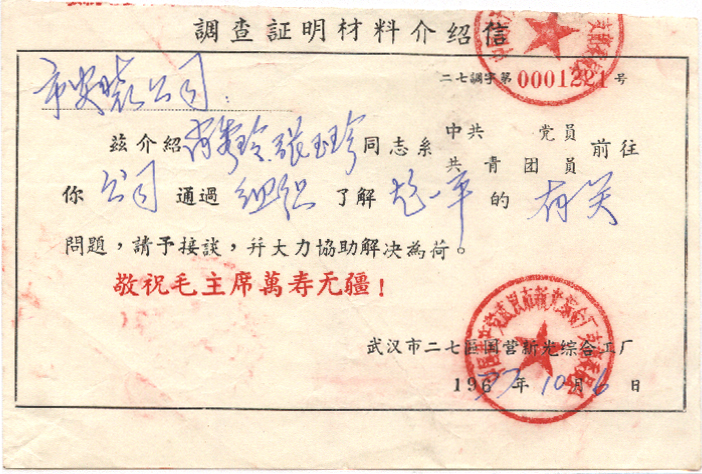 調查証明材料介绍信
二七調字第 0001221 号
市 公司
兹介紹 张玉珍 同志系 中共 党员 共青团员 前往
你 公司 通過 组织 了解 赵一平 的 有关
問題，請予接談，幷大力協助解决為荷。
敬祝毛主席萬寿无疆！
武汉市二七區国营新光综合工厂
196 年 10 月 6 日